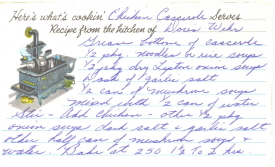 Here's what's cookin' Chicken Casserole Serves
Recipe from the kitchen of Doris Wehr
Grease bottom of casserole
1/2 pkg. noodles or rice soups
1/2 pkg dry Lipton onion soup
Dash of garlic salt
1/2 can of mushroom soup
mixed with 1/2 can of water
Stir - Add Chicken - other 1/2 pkg
onion soup dash salt & garlic salt
other half can of mushroom soup &
water. Bake at 250 1 1/2 to 2 hrs